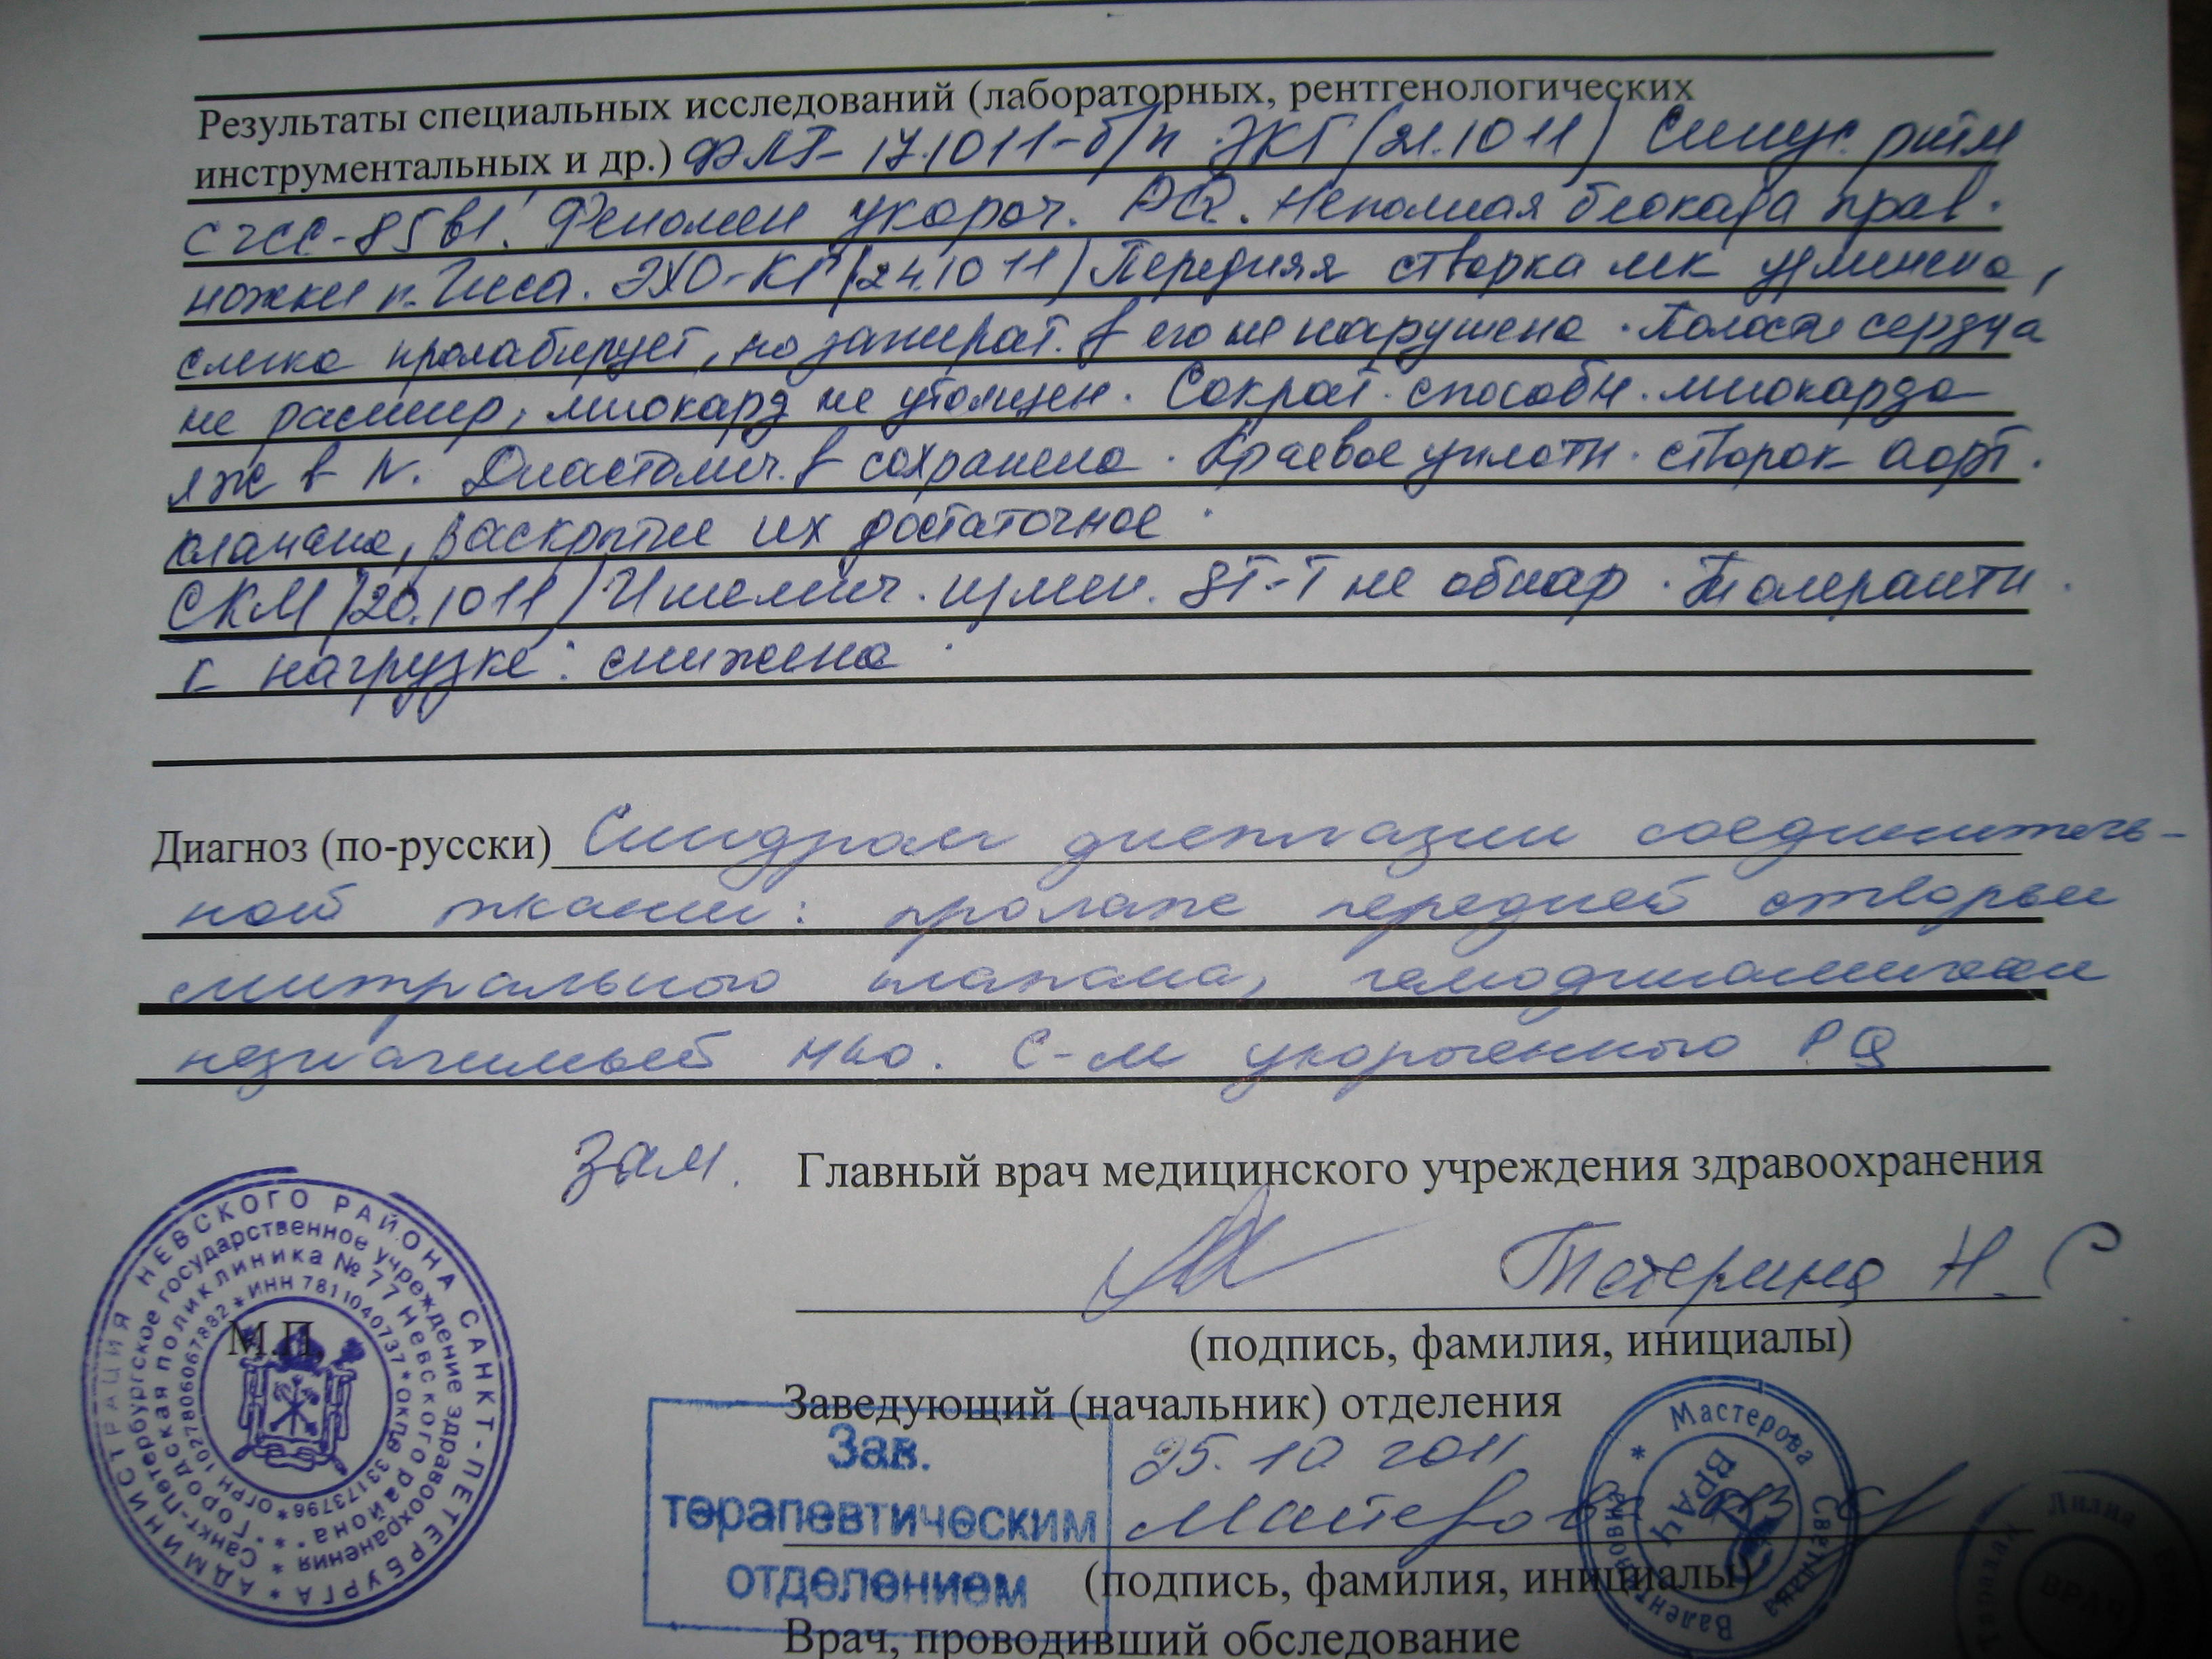 Результаты специальных исследований (лабораторных, рентгенологических
инструментальных и др.) ФЛГ- 17.10 11-б/п ЭКГ (21.10 11) Синус. ритм
с ЧСС-85 в 1'. Феномен укороч. PQ. Неполная блокада прав.
ножки п. Гиса. ЭХО-КГ (24.10 11) Передняя створка МК удлинена,
слегка пролабирует, но запират. f его не нарушена. Полости сердца
не расшир, миокард не утолщен. Сократ. способн. миокарда
ЛЖ в N. Диастолич. f сохранена. Краевое уплотн. створок аорт.
клапана, раскрытие их достаточное.
СКМ (20.10 11) Ишемич. измен. ST-T не обнар. Толерантн.
к нагрузке: снижена.
Диагноз (по-русски) Синдром дисплазии соединитель-
ной ткани: пролапс передней створки
митрального клапана, гемодинамически
незначимый. С-м укороченного PQ
зам. Главный врач медицинского учреждения здравоохранения
Тетерина Н.С
(подпись, фамилия, инициалы)
Заведующий (начальник) отделения
25.10 2011
Мастерова
(подпись, фамилия, инициалы)
Врач, проводивший обследование
М.П.
АДМИНИСТРАЦИЯ НЕВСКОГО РАЙОНА САНКТ-ПЕТЕРБУРГА *
Санкт-Петербургское государственное учреждение здравоохранения *
"Городская поликлиника № 77 Невского района" *
ОГРН 1027806067882 * ИНН 7811040737 * ОКПО 33173796 *
Зав.
терапевтическим
отделением
Мастерова Светлана Валентиновна *
ВРАЧ
Лилия
ВРАЧ